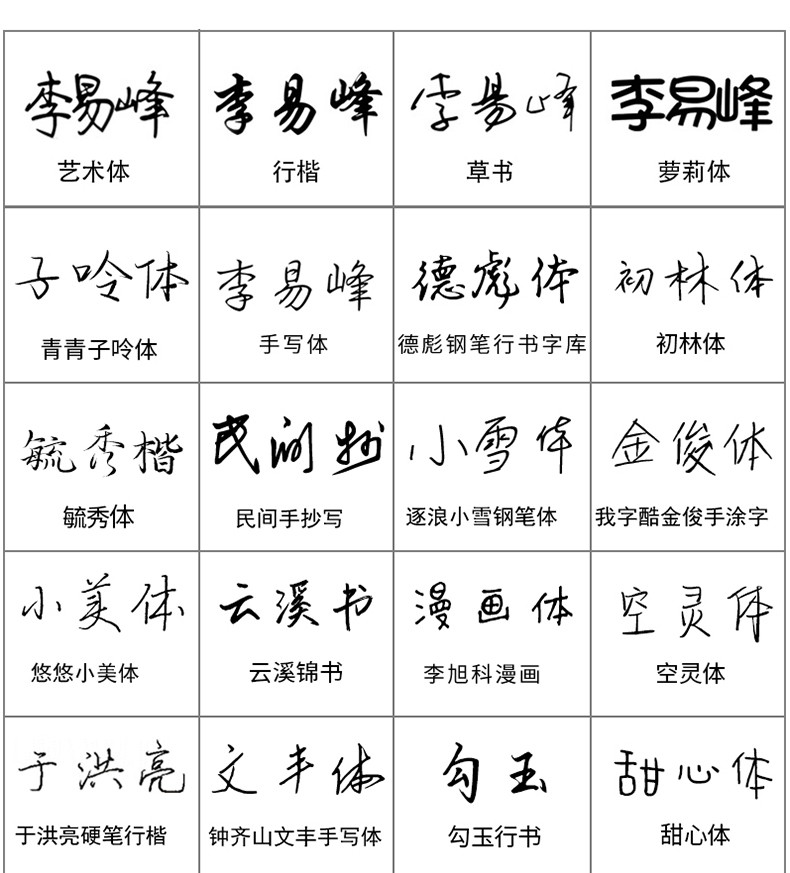 李易峰
艺术体
李易峰
行楷
李易峰
草书
李易峰
萝莉体
子呤体
青青子呤体
李易峰
手写体
德彪体
德彪钢笔行书字库
初林体
初林体
毓秀楷
毓秀体
民间抄
民间手抄写
小雪体
逐浪小雪钢笔体
金俊体
我字酷金俊手涂字
小美体
悠悠小美体
云溪书
云溪锦书
漫画体
李旭科漫画
空灵体
空灵体
于洪亮
于洪亮硬笔行楷
文丰体
钟齐山文丰手写体
勾玉
勾玉行书
甜心体
甜心体